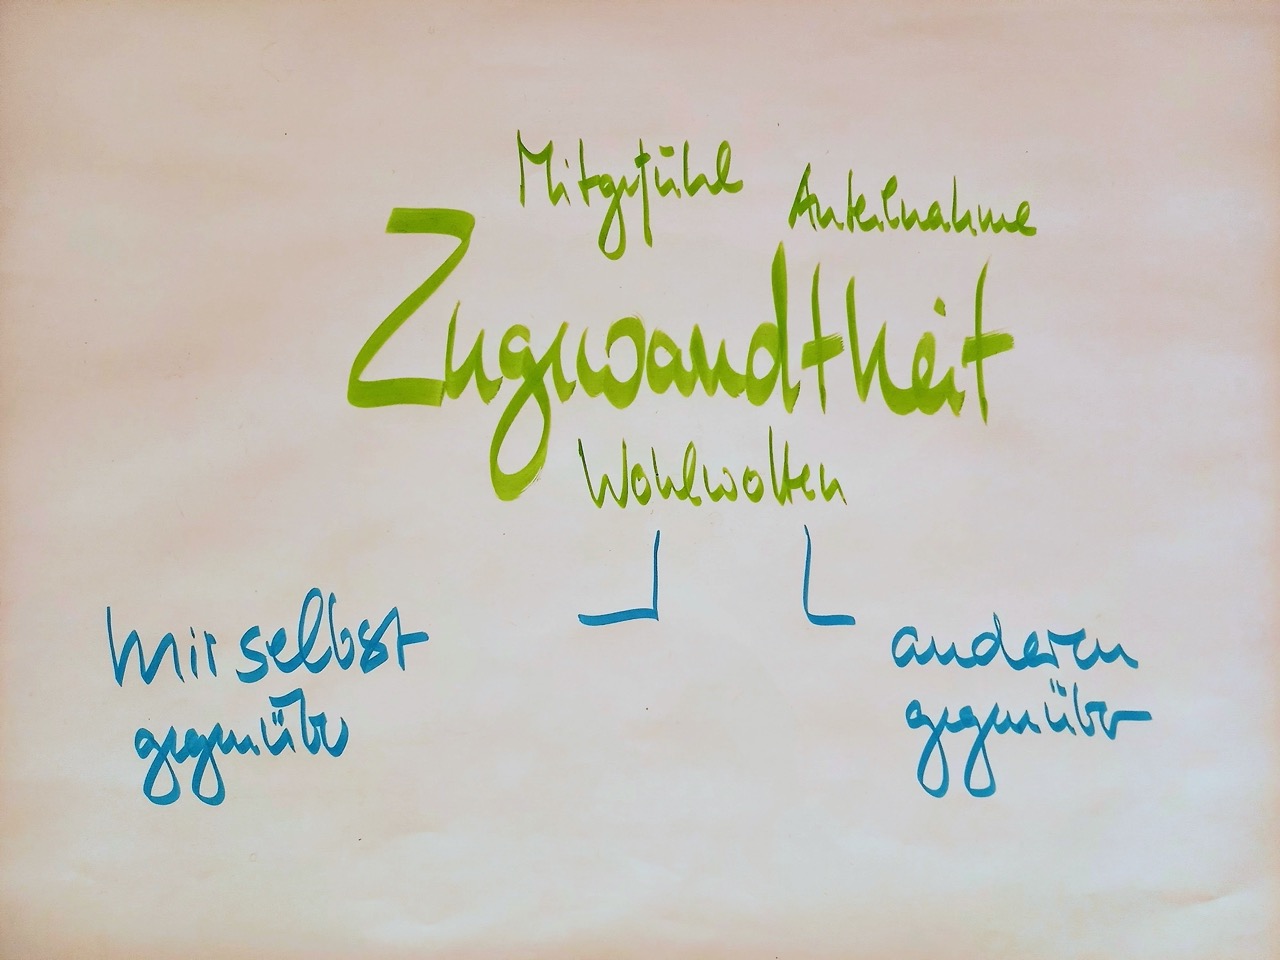 Mitgefühl
Anteilnahme
Zugewandtheit
Wohlwollen
mir selbst
gegenüber
anderen
gegenüber